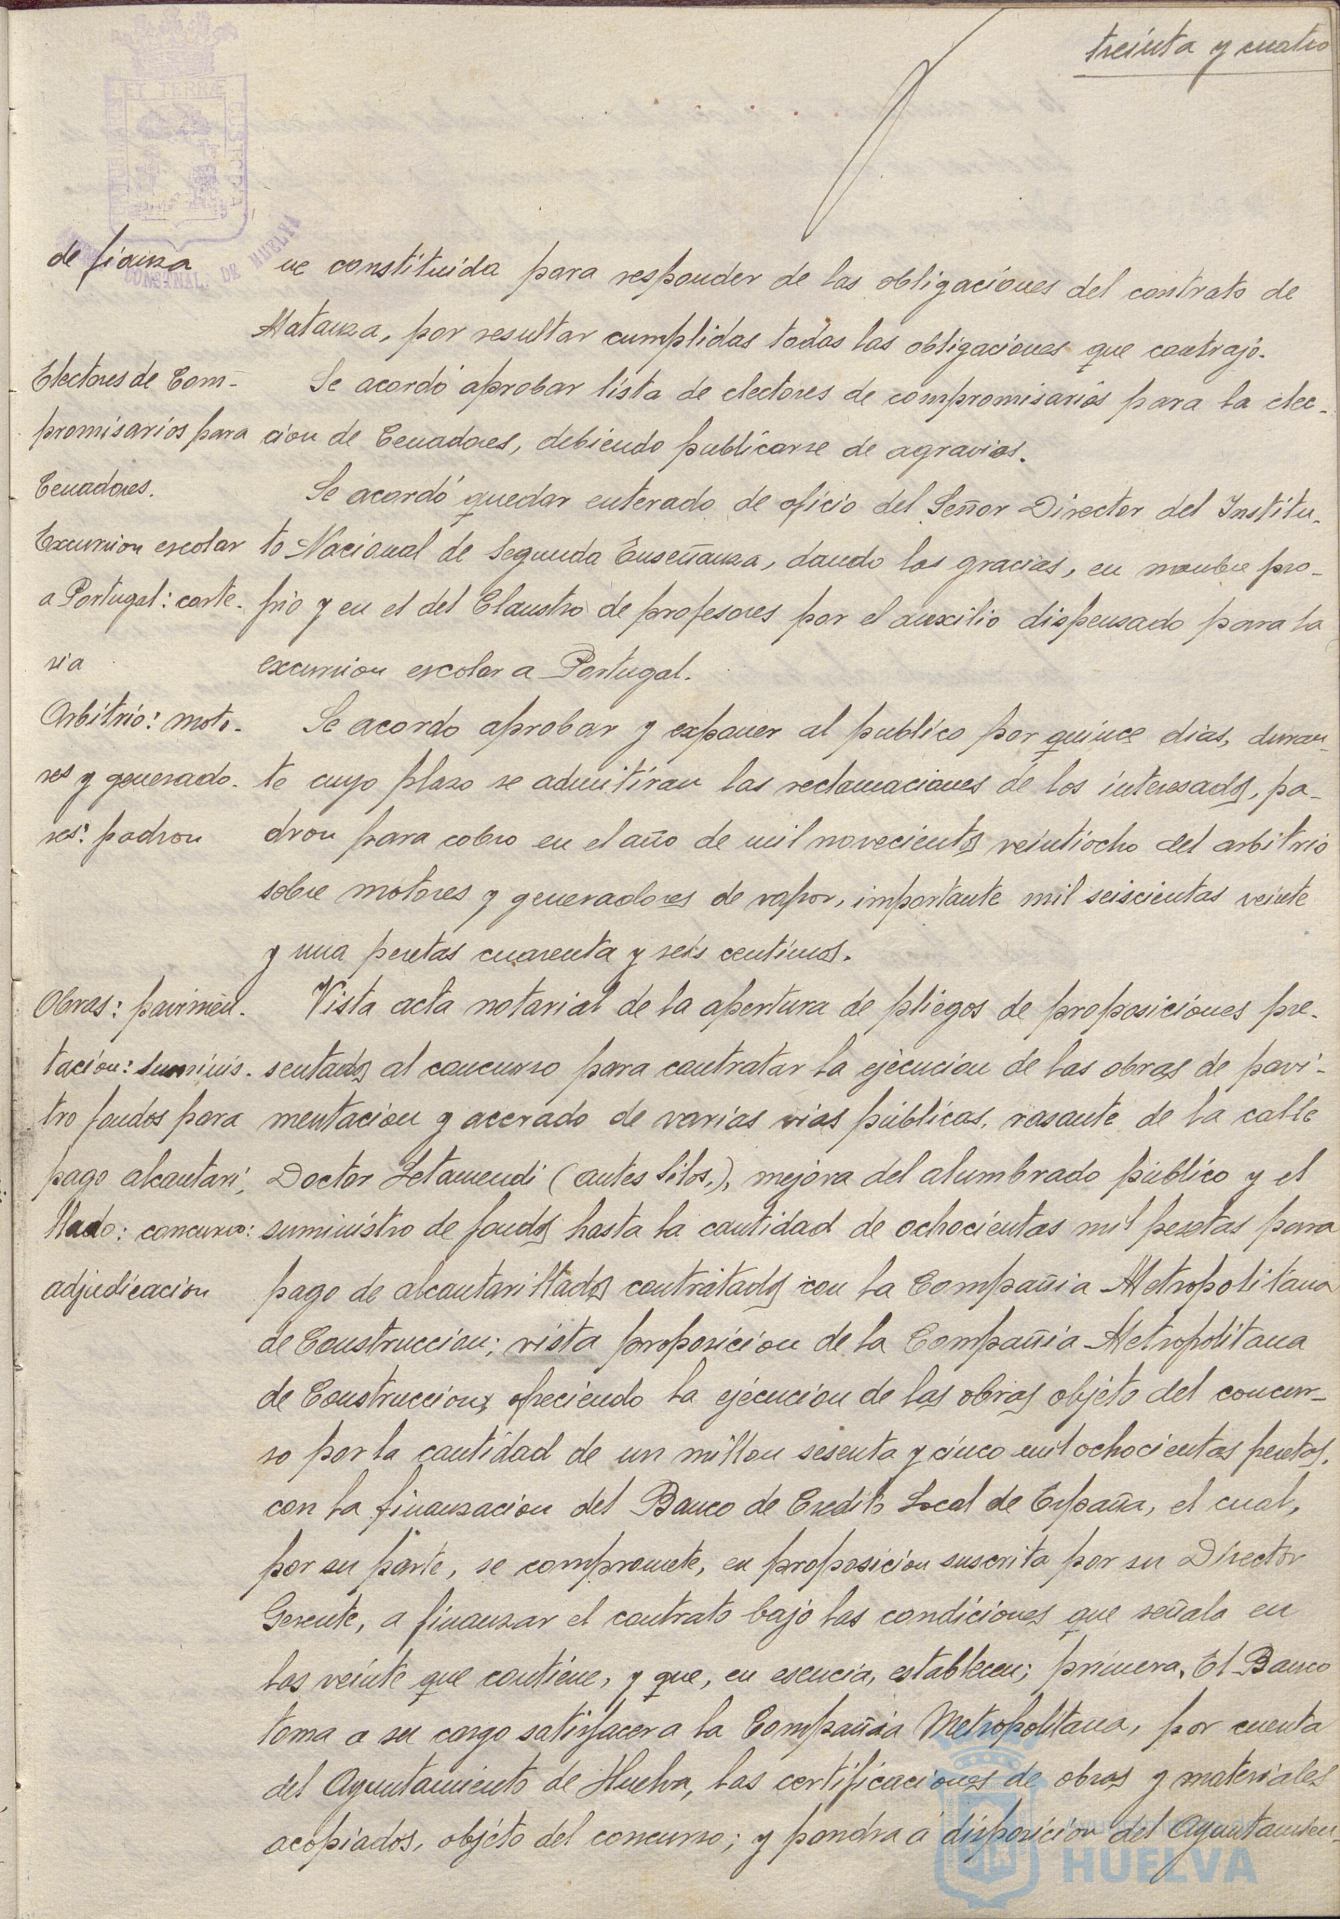 treinta y cuatro
ET TERRÆ
CUSTODIA
DE HUELVA
de fianza
ne constituida para responder de las obligaciones del contrato de
Matanza, por resultar cumplidas todas las obligaciones que contrajo.
Electores de Com-
promisarios para
Cenadores.
Se acordó aprobar lista de electores de compromisarios para la elec-
cion de Cenadores, debiendo publicarse de agravios.
Excursion escolar
a Portugal: carte-
ria
Se acordó quedar enterado de oficio del Señor Director del Institu-
to Nacional de Segunda Enseñanza, dando las gracias, en nombre pro-
pio y en el del Claustro de profesores por el auxilio dispensado para la
excursion escolar a Portugal.
Arbitrio: moto-
res y generado-
res: padron
Se acordo aprobar y exponer al publico por quince dias, duran-
te cuyo plazo se admitiran las reclamaciones de los interesados, pa-
dron para cobro en el año de mil novecientos veintiocho del arbitrio
sobre motores y generadores de vapor, importante mil seiscientas veinte
y una pesetas cuarenta y seis centimos.
Obras: pavimen-
tacion: suminis-
tro fondos para
pago alcantari-
llado: concurso:
adjudicacion
Vista acta notarial de la apertura de pliegos de proposiciones pre-
sentados al concurso para contratar la ejecucion de las obras de pavi-
mentacion y acerado de varias vias públicas, rasante de la calle
Doctor Letamendi (antes Silos,), mejora del alumbrado público y el
suministro de fondos hasta la cantidad de ochocientas mil pesetas para
pago de alcantarillados contratados con la Compañia Metropolitana
de Construccion; vista proposicion de la Compañia Metropolitana
de Construccion, ofreciendo la ejecucion de las obras objeto del concur-
so por la cantidad de un millon sesenta y cinco mil ochocientas pesetas,
con la finanzacion del Banco de Credito Local de España, el cual,
por su parte, se compromete, en proposicion suscrita por su Director
Gerente, a finanzar el contrato bajo las condiciones que señala en
las veinte que contiene, y que, en esencia, establecen; primera. El Banco
toma a su cargo satisfacer a la Compañia Metropolitana, por cuenta
del Ayuntamiento de Huelva, las certificaciones de obras y materiales
acopiados, objeto del concurso; y pondra á disposicion del Ayuntamien-
HUELVA